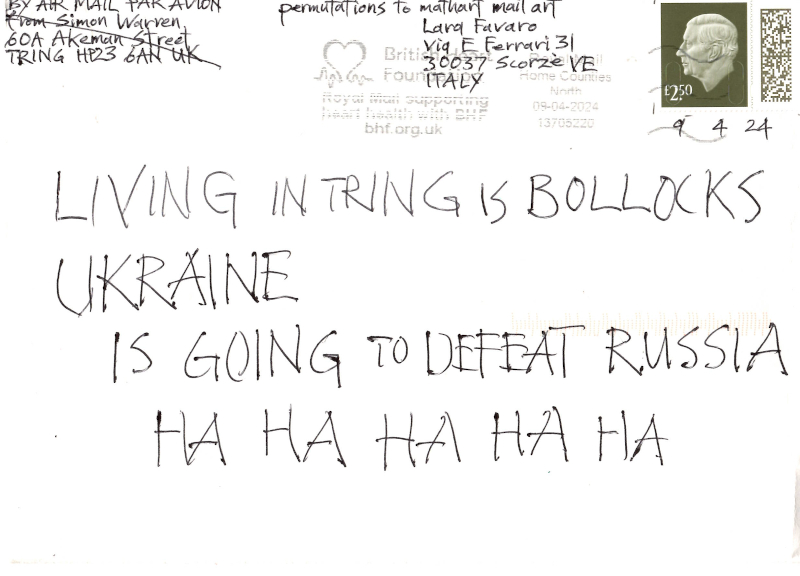 BY AIR MAIL PAR AVION
From Simon Warren
60A Akeman Street
TRING HP23 6AN UK
permutations to mathart mail art
Lara Favaro
via E Ferrari 31
30037 Scorzè VE
ITALY
British Heart
Foundation
Royal Mail supporting
heart health with BHF
bhf.org.uk
Royal Mail
Home Counties
North
09-04-2024
13705220
£2.50
9 4 24
LIVING IN TRING IS BOLLOCKS
UKRAINE
IS GOING TO DEFEAT RUSSIA
HA HA HA HA HA